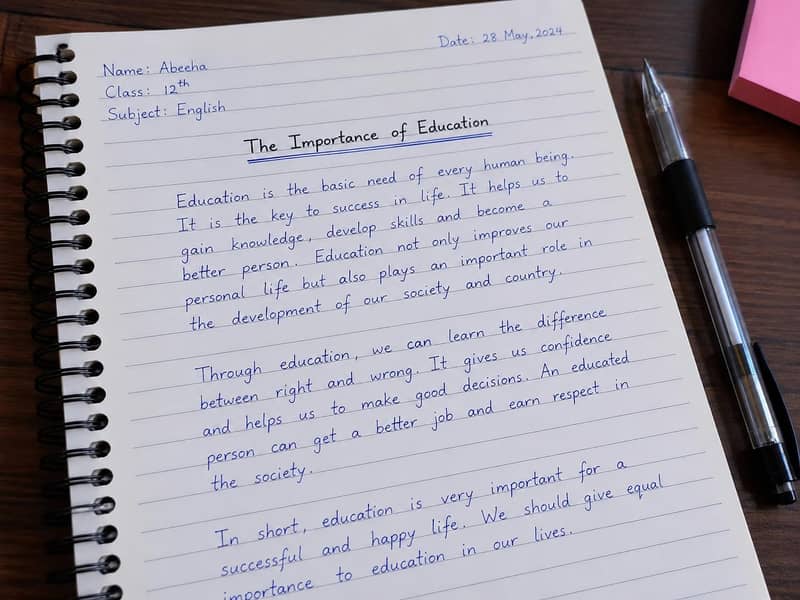 Date: 28 May, 2024
Name: Abeeha
Class: 12th
Subject: English
The Importance of Education
Education is the basic need of every human being.
It is the key to success in life. It helps us to
gain knowledge, develop skills and become a
better person. Education not only improves our
personal life but also plays an important role in
the development of our society and country.
Through education, we can learn the difference
between right and wrong. It gives us confidence
and helps us to make good decisions. An educated
person can get a better job and earn respect in
the society.
In short, education is very important for a
successful and happy life. We should give equal
importance to education in our lives.